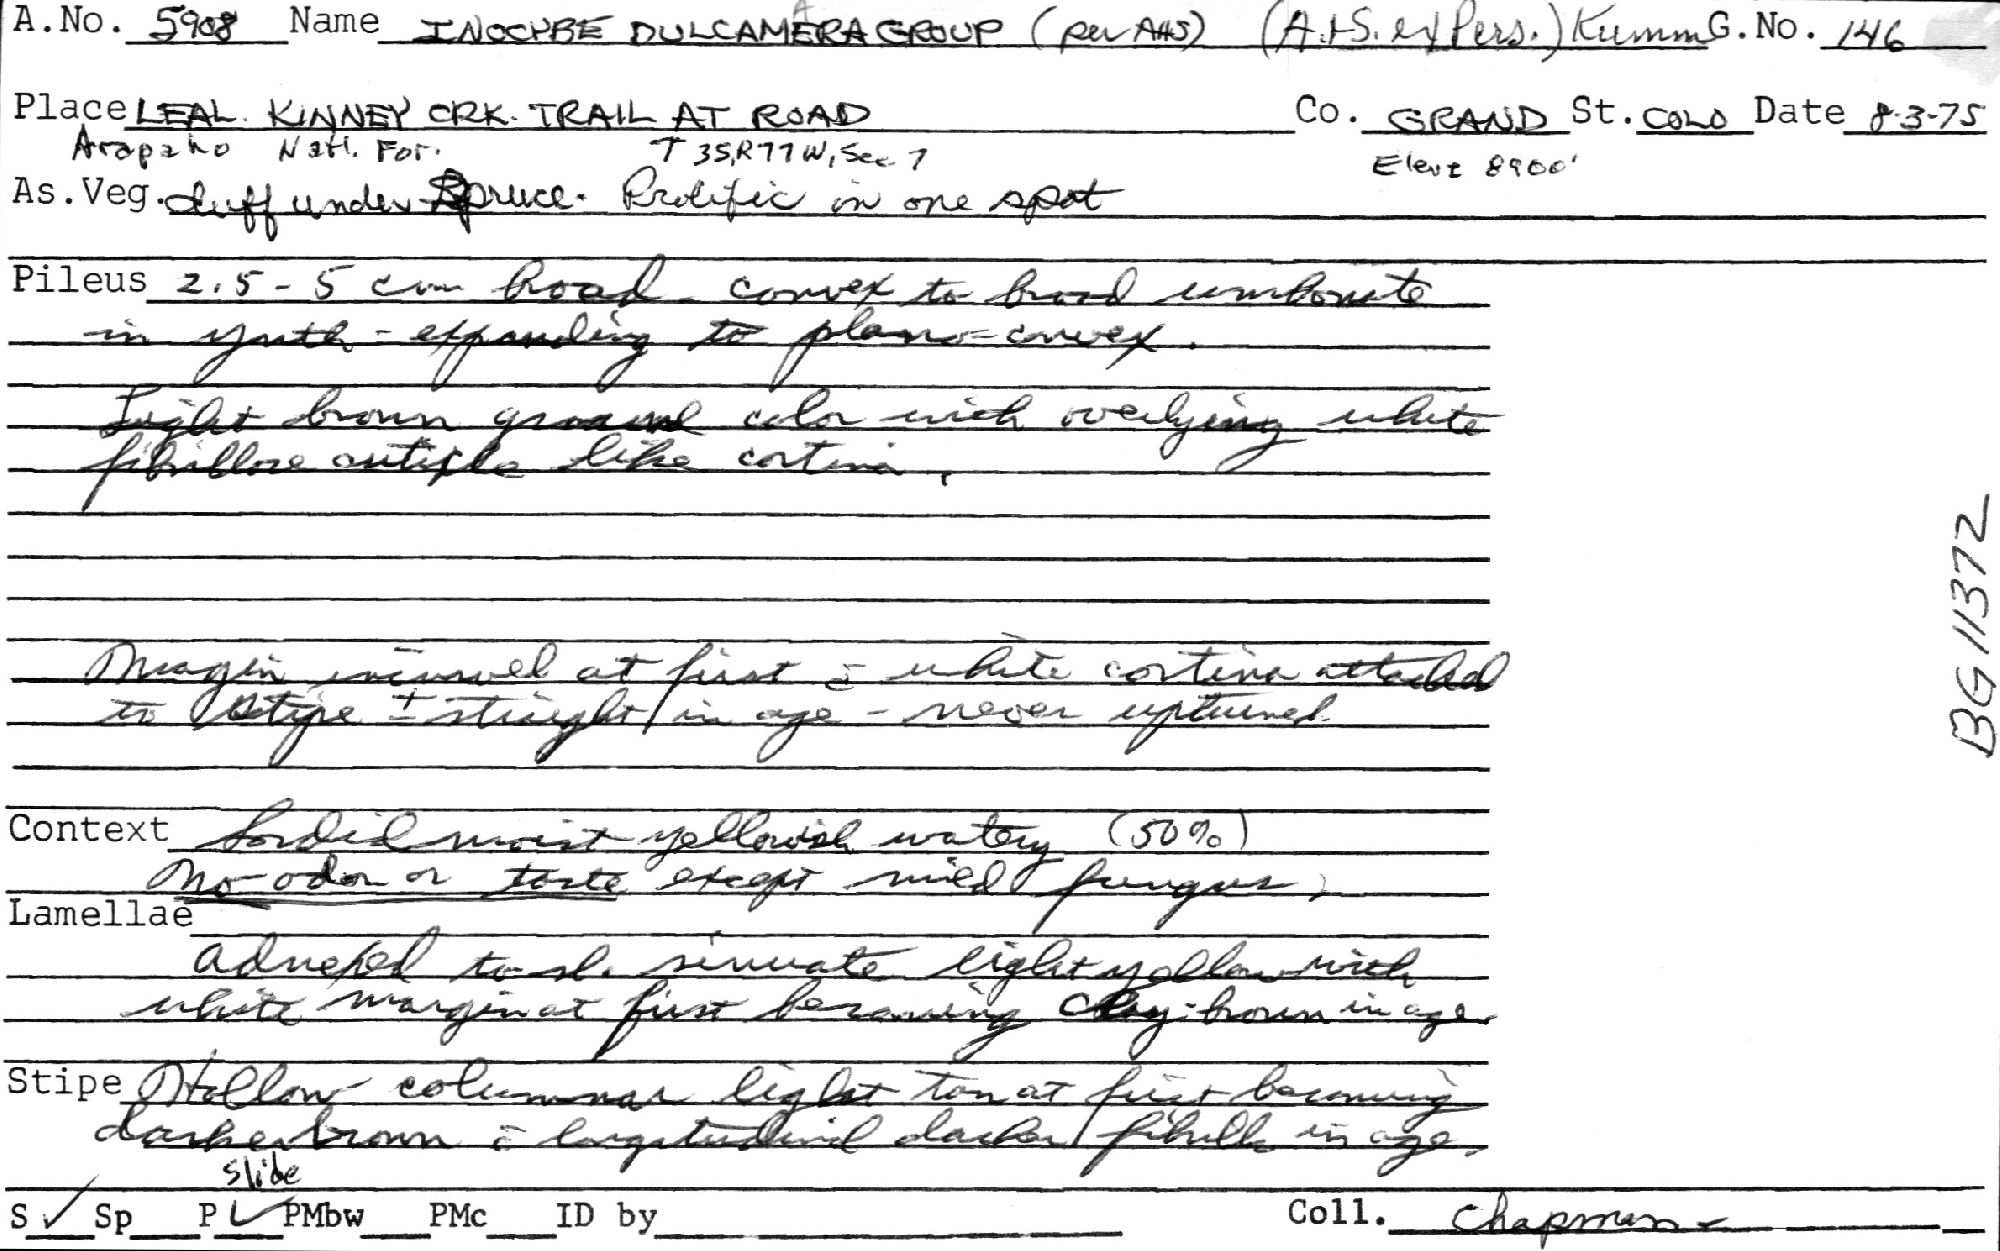 A.No. 5908 Name INOCYBE DULCAMERA GROUP (per AHS) (A.+S. ex Pers.) Kumm G.No. 146
Place LEAL. KINNEY CRK. TRAIL AT ROAD Co. GRAND St. COLO Date 8-3-75
Arapaho Natl. For. T 3S, R77W, Sec. 7 Elev: 8900'
As.Veg. duff under Spruce. Prolific in one spot
Pileus 2.5 - 5 cm broad - convex to broad umbonate
in youth - expanding to plano-convex.
Light brown ground color with overlying white
fibrillose cuticle like cortina.
Margin incurved at first c̄ white cortina attached
to stipe ± straight in age - never upturned.
Context Sordid moist yellowish watery (50%)
No odor or taste except mild fungus,
Lamellae
adnexed to sl. sinuate light yellow with
white margin at first becoming clay-brown in age
Stipe Hollow columnar light tan at first becoming
darker brown c̄ longitudinal darker fibrils in age.
slide
S ✓ Sp P ✓ PMbw PMc ID by Coll. Chapman
BG 11372